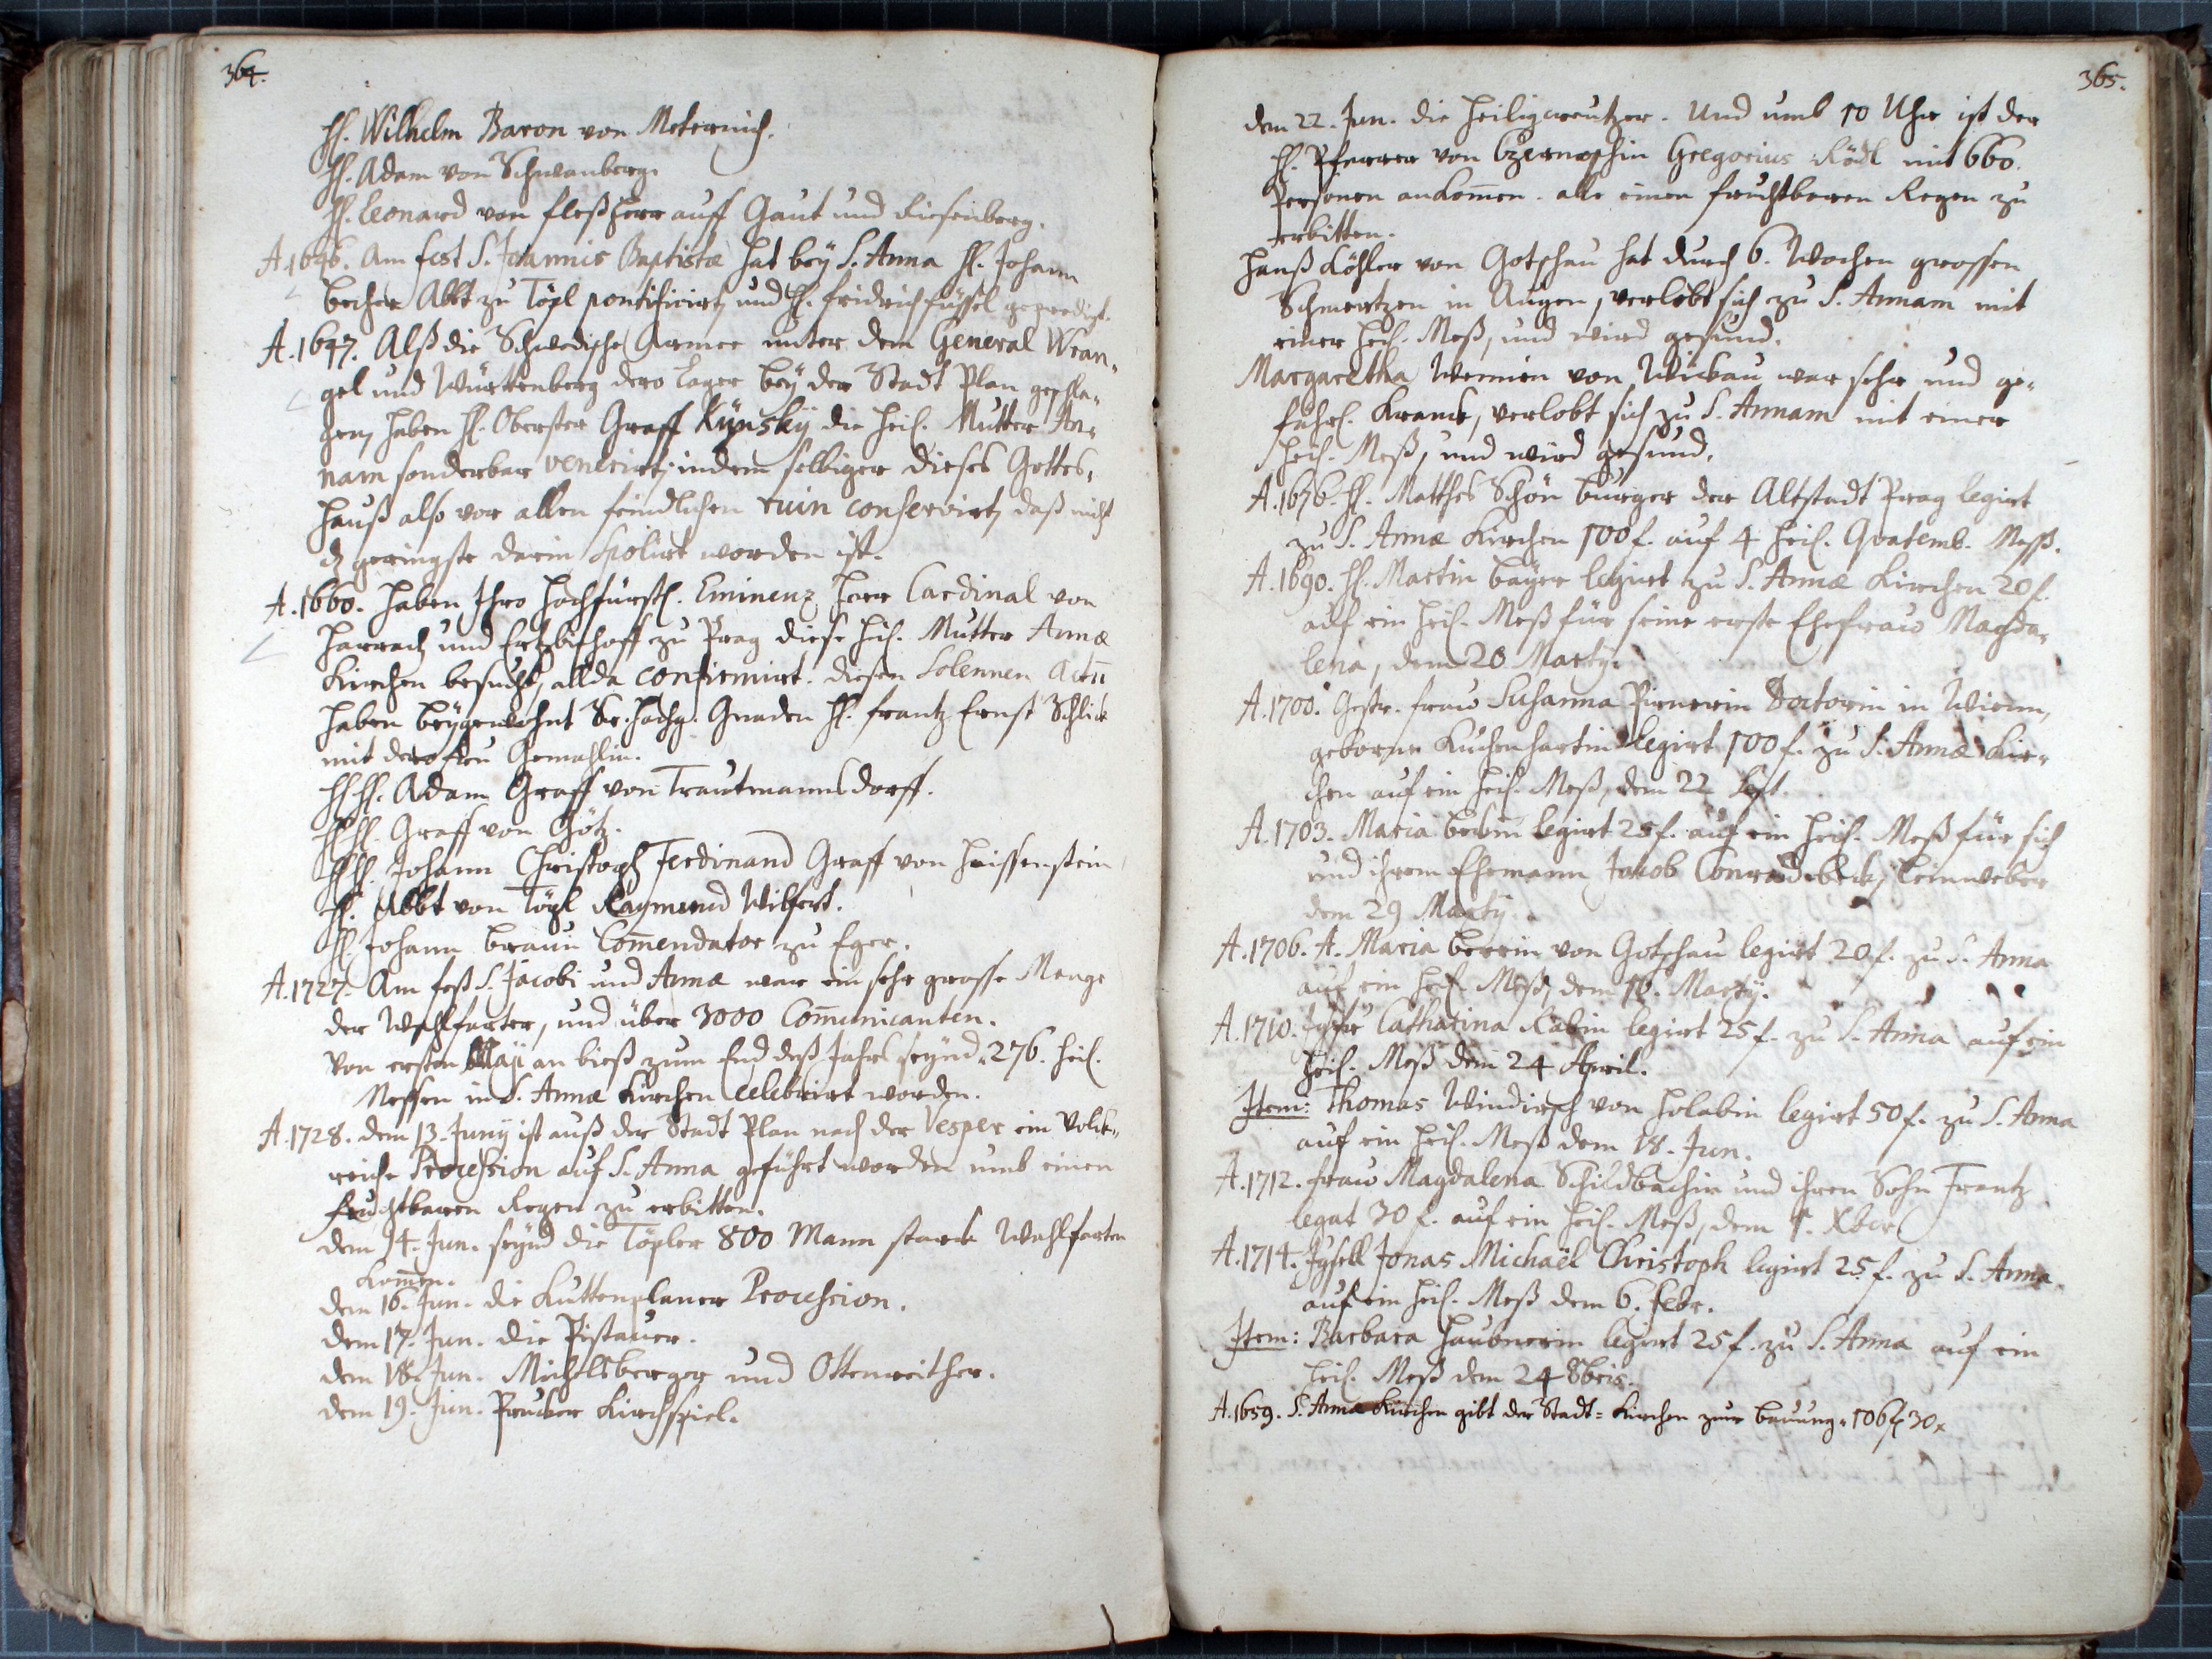 364.
H. Wilhelm Baron von Meternich.
H. Adam von Schwanberg.
H. Leonard von Fels Herr auff Gaut und Riesenberg.
A. 1646. Am fest S. Joannis Baptistæ hat bey S. Anna H. Johann
Becher Abbt zu Töpl pontificirt, und H. Fridrich Füssel gepredigt.
A. 1647. Alß die Schwedische Armee unter dem General Wran„
gel und Würtenberg dero Lager bey der Stadt Plan geschla„
gen, haben H. Obrister Graff Kynsky die Heil. Mutter An„
nam sonderbar venerirt, indem selbiger dieses Gottes„
hauß also vor allen feindlichen ruin conservirt, daß nicht
dz geringste darin spolirt worden ist.
A. 1660. haben Ihro Hochfürstl. Eminenz Herr Cardinal von
Harrach und Ertzbischoff zu Prag diese Heil. Mutter Annæ
Kirchen besucht, allda confirmirt. diesen Solennen Actu
haben beygewohnt Se. Hochg. Gnaden H. Frantz Ernst Schlick
mit dero Frau Gemahlin.
HH. Adam Graff von Trautmannsdorff.
HH. Graff von Götz.
HH. Johann Christoph Ferdinand Graff von Heissenstein
H. Abbt von Töpl Raymund Wilfert.
H. Johann Braun Commendator zu Eger.
A. 1727. Am fest S. Jacobi und Annæ war ein sehr grosse Menge
der Wahlfarter, und über 3000 Communicanten.
Von ersten Maji an bieß zum End deß Jahrs seynd 276. heil.
Messen in S. Annæ Kirchen celebrirt worden.
A. 1728. dem 13. Juny ist auß der Stadt Plan nach der Vesper ein Volck„
reiche Procession auf S. Anna geführt worden umb einen
fruchtbaren Regen zu erbitten.
dem 14. Jun. seynd die Töpler 800 Mann starck Wahlfarten
kommen.
dem 16. Jun. die Kuttenplaner Procession.
dem 17. Jun. die Pistauer.
dem 18. Jun. Michelsberger und Ottenreither.
dem 19. Jun. Prucker Kirchspiel.
365.
dem 22. Jun. die Heiligcreutzer. Und umb 10 Uhr ist der
H. Pfarrer von Czernoschin Gregorius Rödl mit 660.
Personen ankommen. alle einen fruchtbaren Regen zu
erbitten.
Hanß Köhler von Gotschau hat durch 6. Wochen grossen
Schmertzen in Augen, verlobt sich zu S. Annam mit
einer Heil. Meß, und wird gesund.
Margaretha Wennin von Wickau war sehr und ge„
fährl. Kranck, verlobt sich zu S. Annam mit einer
Heil. Meß, und wird gesund.
A. 1676. H. Matthes Schön burger der Altstadt Prag legirt
zu S. Annæ Kirchen 100 f. auf 4 heil. Quatemb. Mess.
A. 1690. H. Martin Bayer legirt zu S. Annæ Kirchen 20 f.
auf ein heil. Meß für seine erste Ehefrau Magda„
lena, dem 20 Marty.
A. 1700. Gestr. Frau Susanna Pirnerin Doctorin in Wienn,
geborne Küchenhartin legirt 100 f. zu S. Annæ Kir„
chen auf ein heil. Meß, dem 22 Sept.
A. 1703. Maria Beckin legirt 25 f. auf ein heil. Meß für sich
und ihrem Ehemann Jacob Conrad Beck, Leinweber
dem 29 Marty.
A. 1706. A. Maria Beerin von Gotschau legirt 20 f. zu S. Anna
auf ein heil. Meß, dem 16. Marty.
A. 1710. Jgfr. Catharina Rabin legirt 25 f. zu S. Anna auf ein
heil. Meß dem 24 April.
Item: Thomas Windirsch von Holabin legirt 50 f. zu S. Anna
auf ein heil. Meß dem 18. Jun.
A. 1712. Frau Magdalena Schildbachin und ihren Sohn Frantz
legat 30 f. auf ein heil. Meß, dem 1. Xber
A. 1714. Jgsell Jonas Michaël Christoph legirt 25 f. zu S. Anna.
auf ein heil. Meß dem 6. Febr.
Item: Barbara Haubnerin legirt 25 f. zu S. Anna auf ein
heil. Meß dem 24 8bris.
A. 1659. S. Anna Kirchen gibt der Stadt-Kirchen zur bauung 106 f 30 x